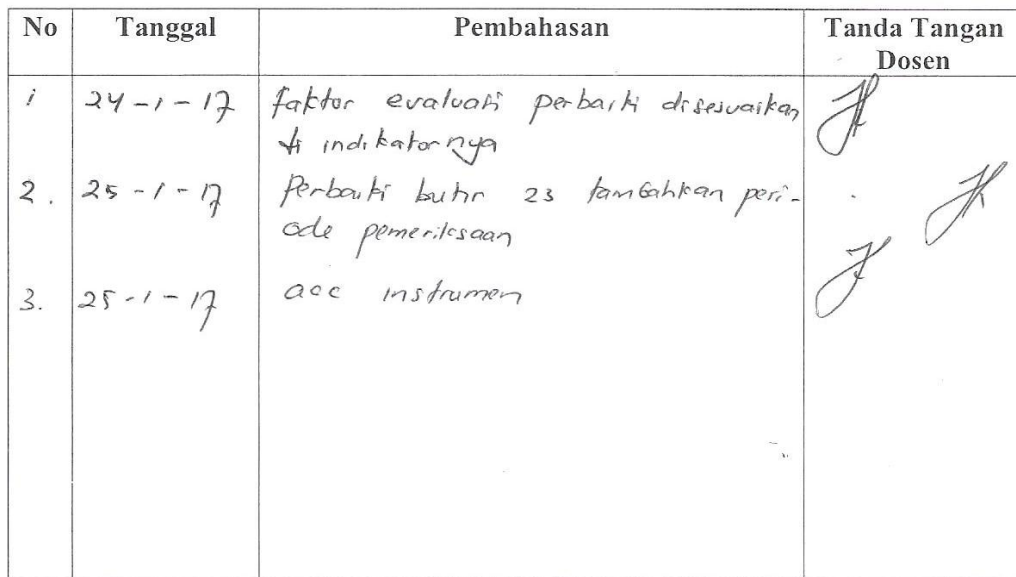 No Tanggal Pembahasan Tanda Tangan
Dosen
1 24-1-17 faktor evaluasi perbaiki disesuaikan
indikatornya
2. 25-1-17 Perbaiki butir 23 tambahkan peri-
ode pemeriksaan
3. 25-1-17 acc instrumen